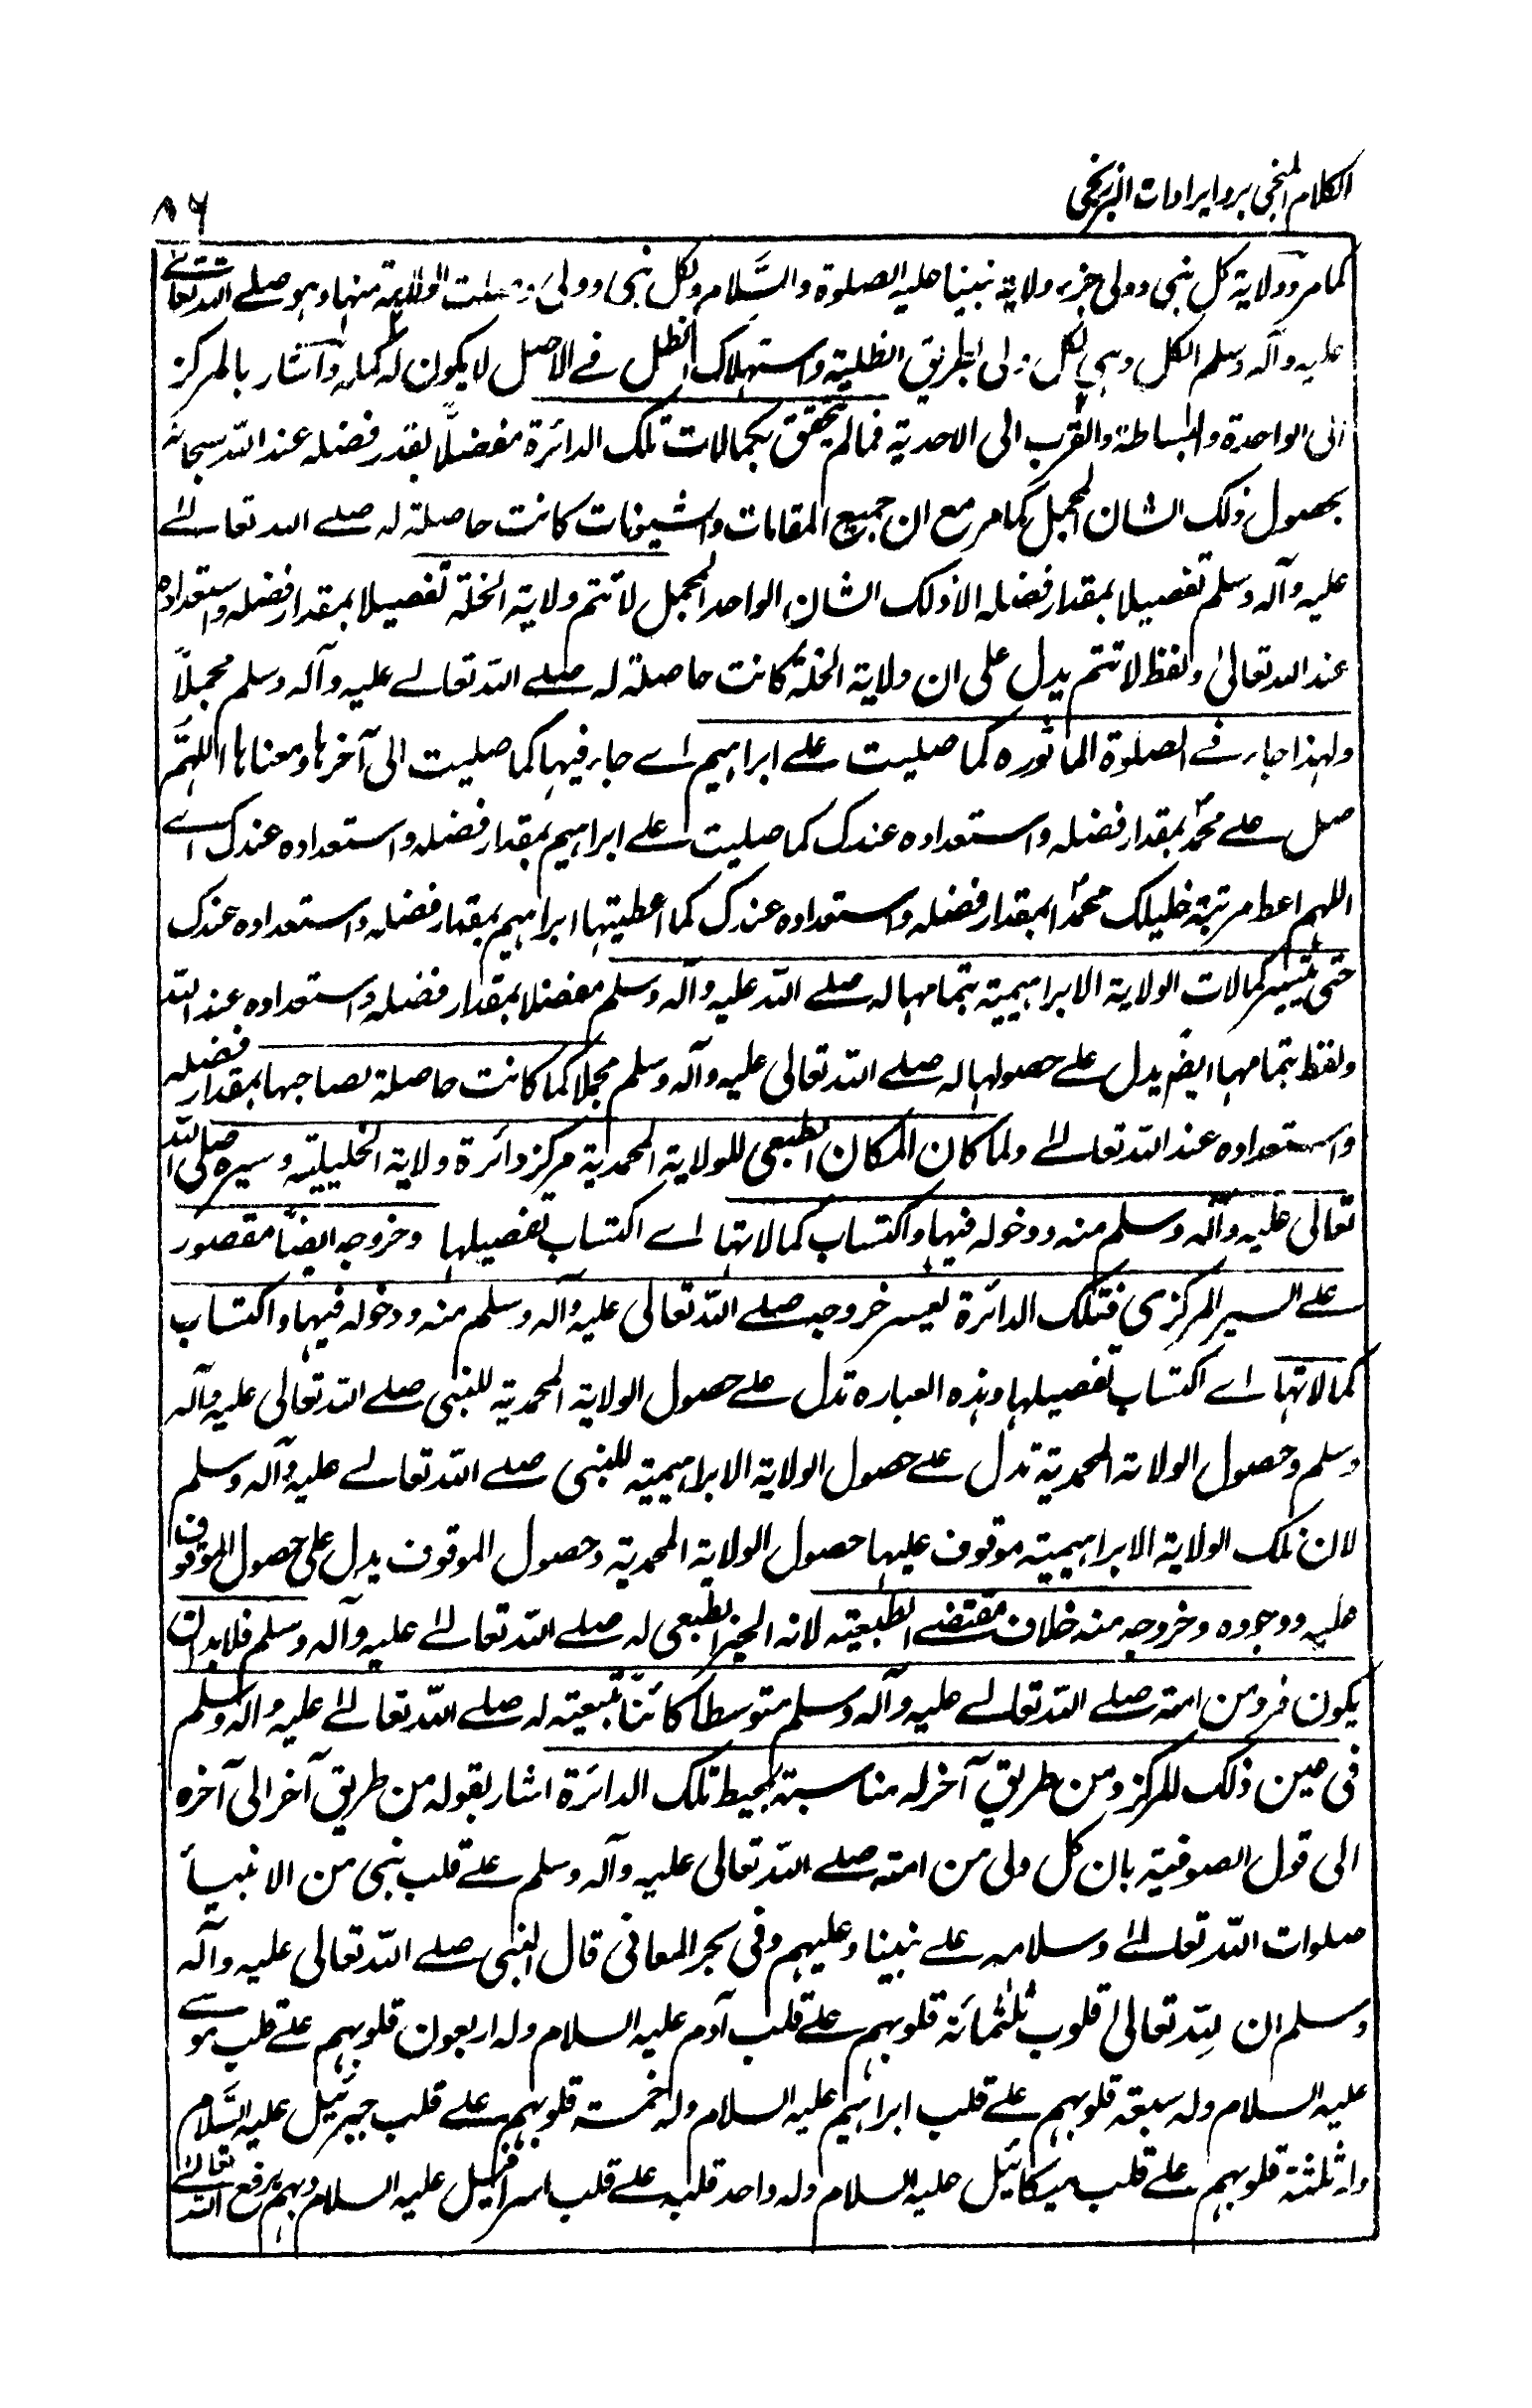 الكلام المنجى برد ايرادات البرزنجى
٨٦
كما مر وولاية كل نبى وولى جزء ولاية نبينا عليه الصلوة والسَّلام ولكل نبى وولى الولاية منها وهو صلے الله تعالىٰ
عليه وآله وسلم الكل وهى لكل ولى بطريق الظلية واستهلاك الظل فے الاصل لا يكون له كماله واشار بالمركز
الى الواحدة والبساطة والقرب الى الاحدية فما لم يتحقق بكمالات تلك الدائرة مفصلاً بقدر فضله عند الله سبحانه
بحصول ذلك الشان المجمل كما مر مع ان جميع المقامات والشيونات كانت حاصلة له صلے الله تعالىٰ
عليه وآله وسلم تفصيلا بمقدار فضله الا ذلك الشان الواحد المجمل لا تتم ولاية الخلة تفصيلا بمقدار فضله واستعداده
عند الله تعالىٰ ولفظ لا تتم يدل على ان ولاية الخلة كانت حاصلة له صلے الله تعالے عليه وآله وسلم مجملاً
ولهذا جاء فے الصلوة الماثوره كما صليت علے ابراهيم اے جاء فيها كما صليت الى آخرها ومعناها اللهمَّ
صل علے محمد بمقدار فضله واستعداده عندك كما صليت علے ابراهيم بمقدار فضله واستعداده عندك اے
اللهم اعط مرتبة خليلك محمدًا بمقدار فضله واستعداده عندك كما اعطيتها ابراهيم بمقدار فضله واستعداده عندك
حتى تتيسر كمالات الولاية الابراهيمية بتمامها له صلے الله عليه وآله وسلم مفصلا بمقدار فضله واستعداده عند الله
ولفظ بتمامها ايضً يدل علے حصولها له صلے الله تعالى عليه وآله وسلم مجملا كما كانت حاصلة لصاحبها بمقدار فضله
واستعداده عند الله تعالىٰ ولما كان المكان الطبعى للولاية المحمدية مركز دائرة ولاية الخليلية وسيره صلى الله
تعالى عليه وآله وسلم منه ودخوله فيها واكتساب كمالاتها اے اكتساب تفصيلها وخروجه ايضًا مقصور
علے السير المركزى فتلك الدائرة تعيسر خروجه صلے الله تعالى عليه وآله وسلم منه ودخوله فيها واكتساب
كمالاتها اے اكتساب تفصيلها وهذه العباره تدل علے حصول الولاية المحمدية للنبى صلے الله تعالى عليه وآله
وسلم وحصول الولاية المحمدية تدل علے حصول الولاية الابراهيمية للنبى صلے الله تعالے عليه وآله وسلم
لان تلك الولاية الابراهيمية موقوف عليها حصول الولاية المحمدية وحصول الموقوف يدل على حصول الموقوف
عليه ووجوده وخروجه منه خلاف مقتضے الطبيعته لانه الحيز الطبعى له صلے الله تعالىٰ عليه وآله وسلم فلا بد ان
يكون فرد من امته صلے الله تعالے عليه وآله وسلم متوسطا كائنًا بتبعيته له صلے الله تعالىٰ عليه وآله وسلم
فى عين ذلك للمركز ومن طريق آخر له مناسبة بمحيط تلك الدائرة اشار بقوله من طريق آخر الى آخره
الى قول الصوفية بان كل ولى من امته صلے الله تعالى عليه وآله وسلم علے قلب نبى من الانبياء
صلوات الله تعالىٰ وسلامه علے نبينا وعليهم وفى بحر المعانى قال النبى صلے الله تعالى عليه وآله
وسلم ان لِلّه تعالىٰ قلوب ثلثمائة قلوبهم علے قلب آدم عليه السلام وله اربعون قلوبهم علے قلب موسے
عليه السلام وله سبعة قلوبهم علے قلب ابراهيم عليه السلام وله خمسة قلوبهم علے قلب جبرئيل عليه السَّلام
وله ثلثة قلوبهم علے قلب ميكائيل عليه السلام وله واحد قلبه علے قلب اسرافيل عليه السلام وبهم يرفع الله تعالىٰ